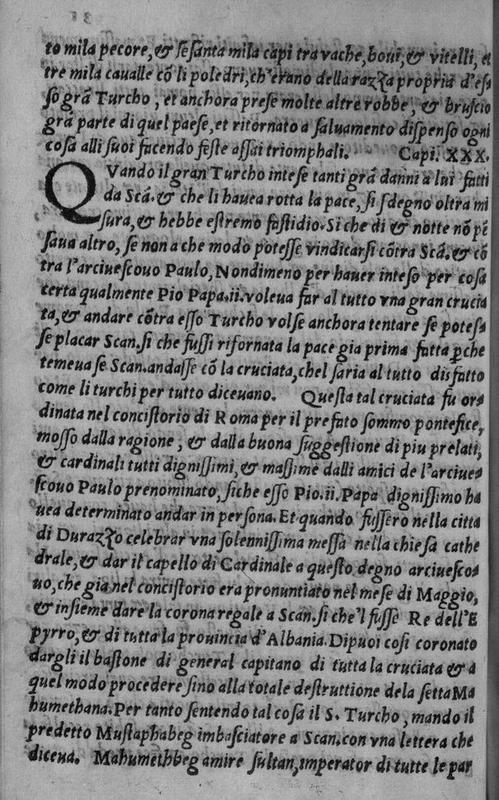 to mila pecore, & sesanta mila capi tra vache, boui, & vitelli, et
tre mila caualle cō li poledri, ch'erano della razza propria d'es
so grā Turcho, et anchora prese molte altre robbe, & bruscio
grā parte di quel paese, et ritornato a saluamento dispenso ogni
cosa alli suoi facendo feste assai triomphali. Capi. XXX.
QVando il gran Turcho intese tanti grā danni a lui fatti
da Scā. & che li hauea rotta la pace, si sdegno oltra mi
sura, & hebbe estremo fastidio. Si che di & notte nō pē
saua altro, se non a che modo potesse vindicarsi cōtra Scā. & cō
tra l'arciuescouo Paulo, Nondimeno per hauer inteso per cosa
certa qualmente Pio Papa.ii. voleua far al tutto vna gran crucia
ta, & andare cōtra esso Turcho volse anchora tentare se potes
se placar Scan. si che fussi rifornata la pace gia prima fatta ꝑche
temeua se Scan. andasse cō la cruciata, chel saria al tutto disfatto
come li turchi per tutto diceuano. Questa tal cruciata fu or
dinata nel concistorio di Roma per il prefato sommo pontefice,
mosso dalla ragione, & dalla buona suggestione di piu prelati,
& cardinali tutti dignissimi, & massime dalli amici de l'arciues
scouo Paulo prenominato, siche esso Pio.ii. Papa dignissimo ha
uea determinato andar in persona. Et quando fussero nella citta
di Durazzo celebrar vna solennissima messa nella chiesa cathe
drale, & dar il capello di Cardinale a questo degno arciuesco
uo, che gia nel concistorio era pronuntiato nel mese di Maggio,
& insieme dare la corona regale a Scan. si che'l fusse Re dell'E
pyrro, & di tutta la prouincia d'Albania. Dipuoi cosi coronato
dargli il bastone di general capitano di tutta la cruciata & a
quel modo procedere sino alla totale destruttione dela setta Ma
humethana. Per tanto sentendo tal cosa il S. Turcho, mando il
predetto Mustaphabeg imbasciatore a Scan. con vna lettera che
diceua. Mahumethbeg amire sultan, imperator di tutte le par